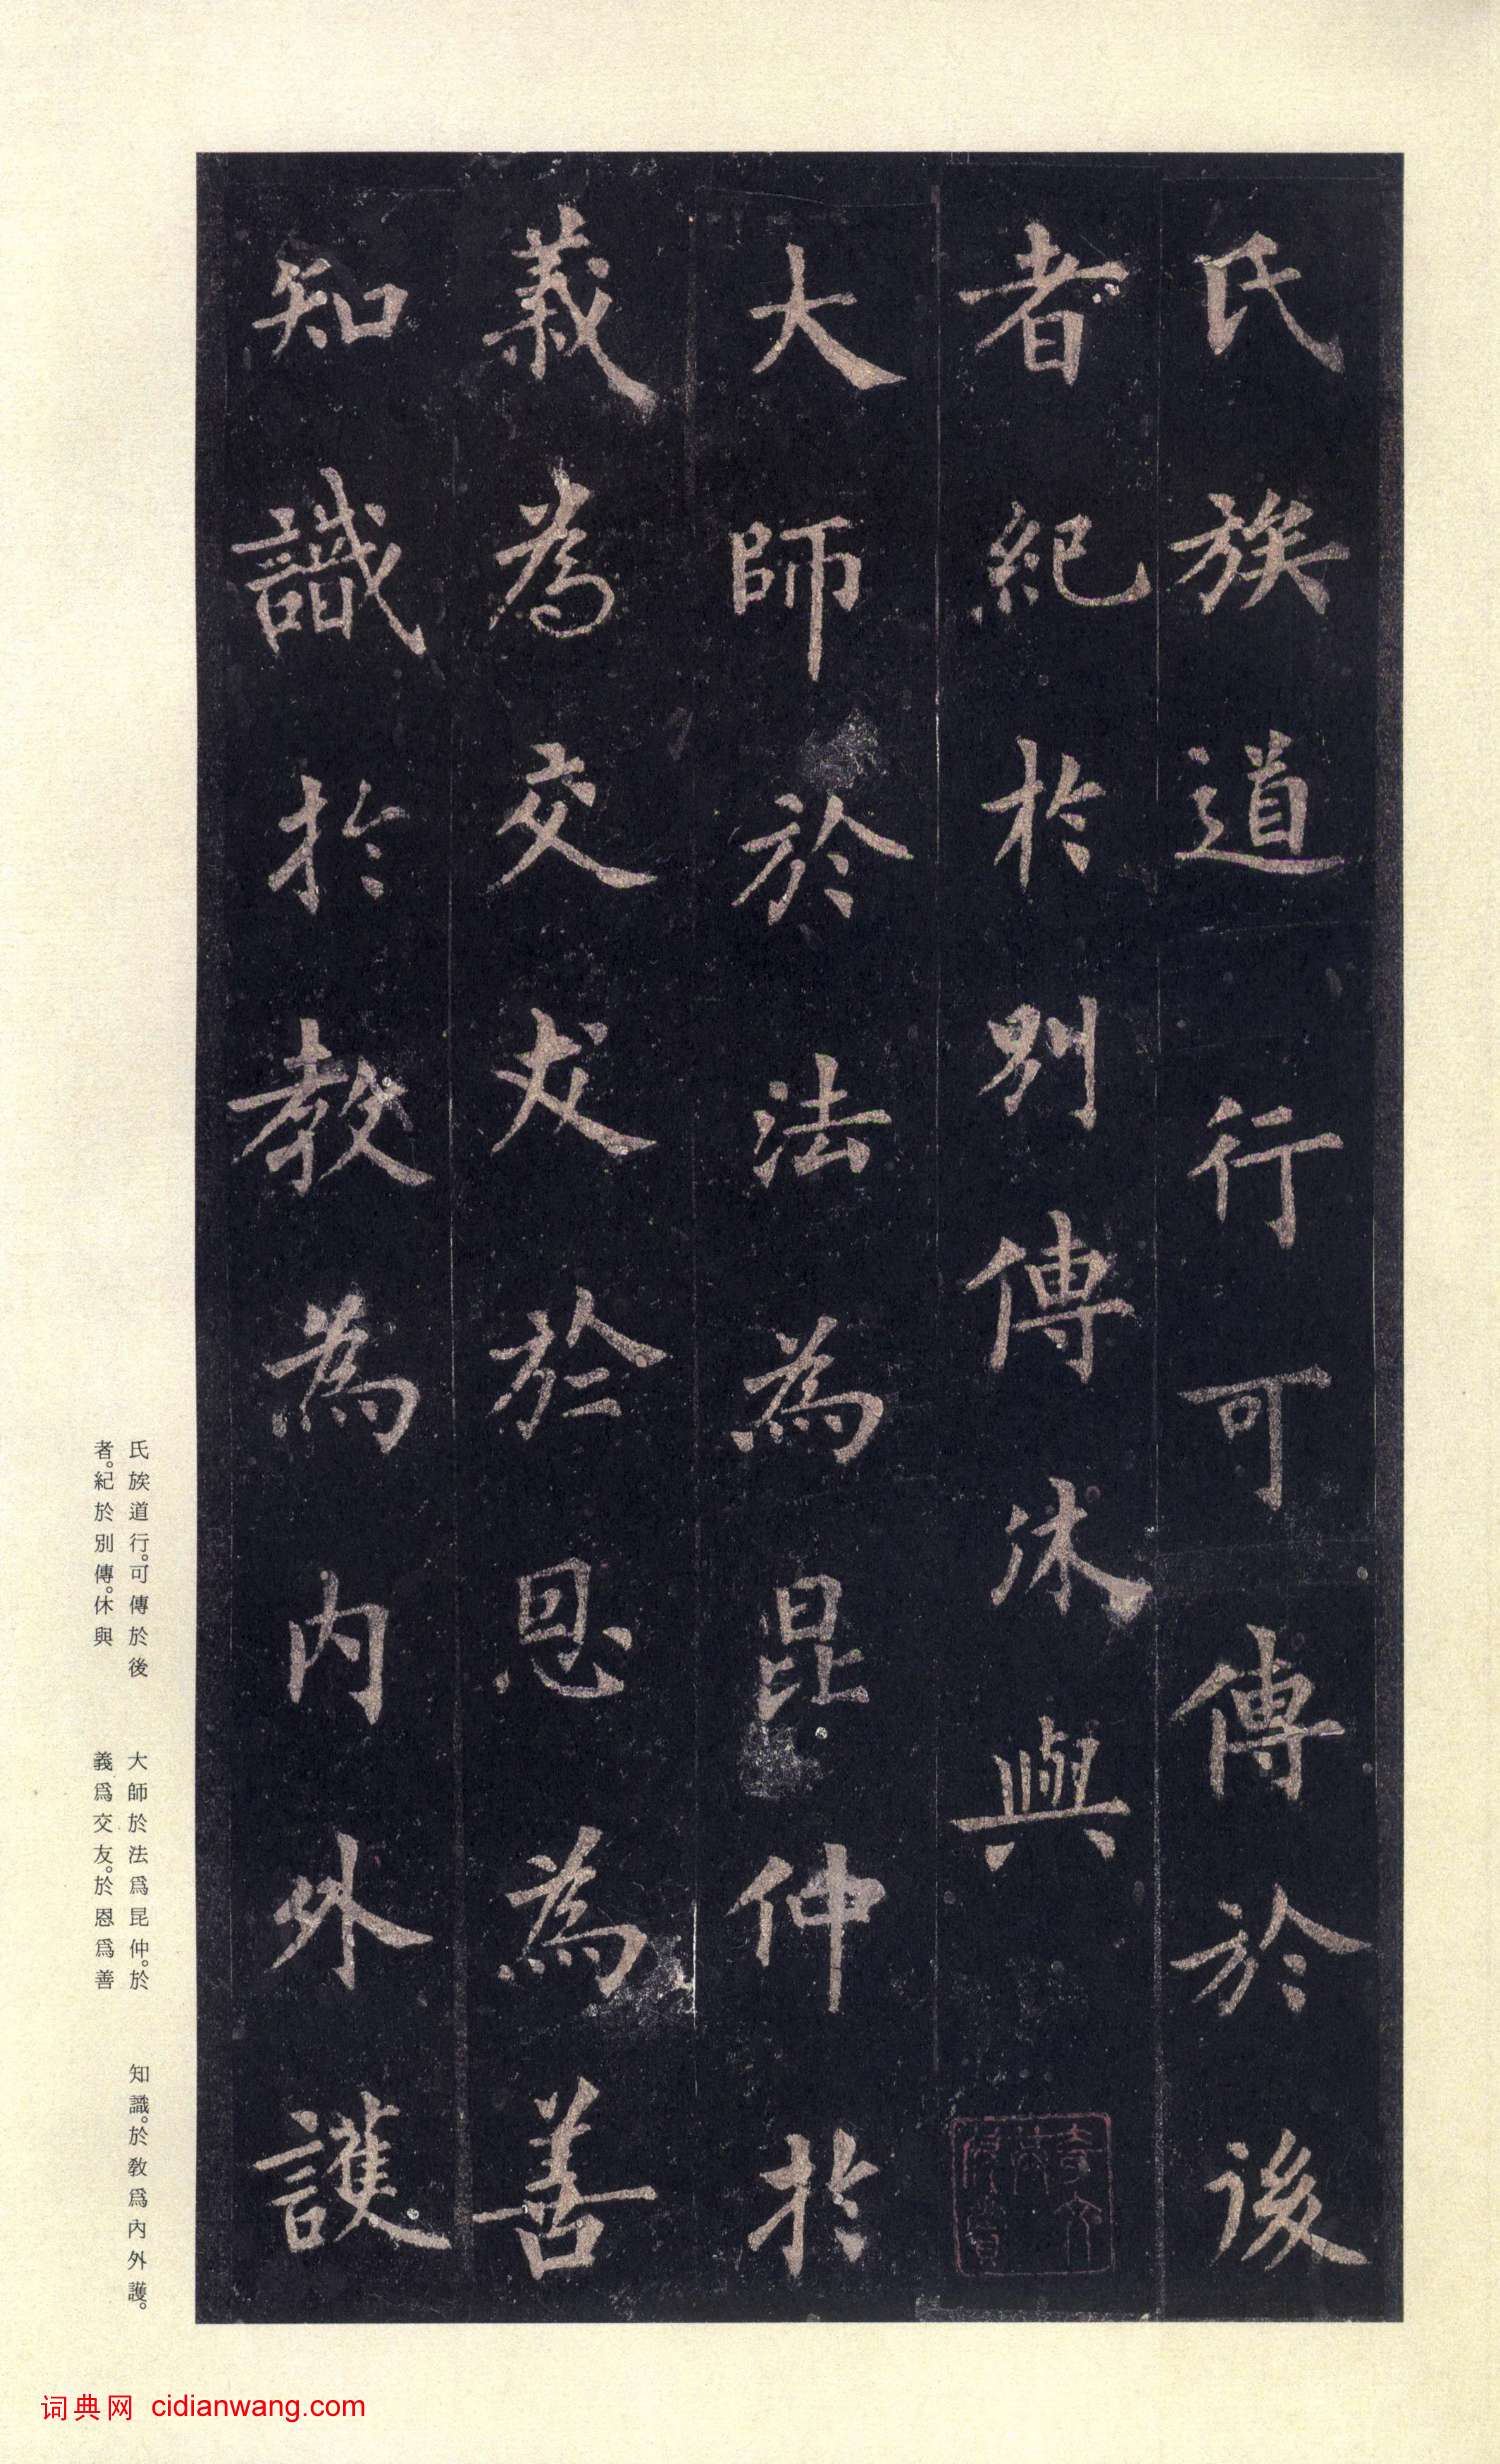 氏族道行可傳於後
者紀於別傳休與
大師於法為昆仲於
義為交友於恩為善
知識於教為內外護
氏族道行。可傳於後
者。紀於別傳。休與
大師於法爲昆仲。於
義爲交友。於恩爲善
知識。於教爲內外護。
词典网 cidianwang.com